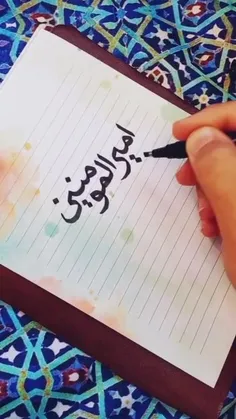 امیرالمومنین